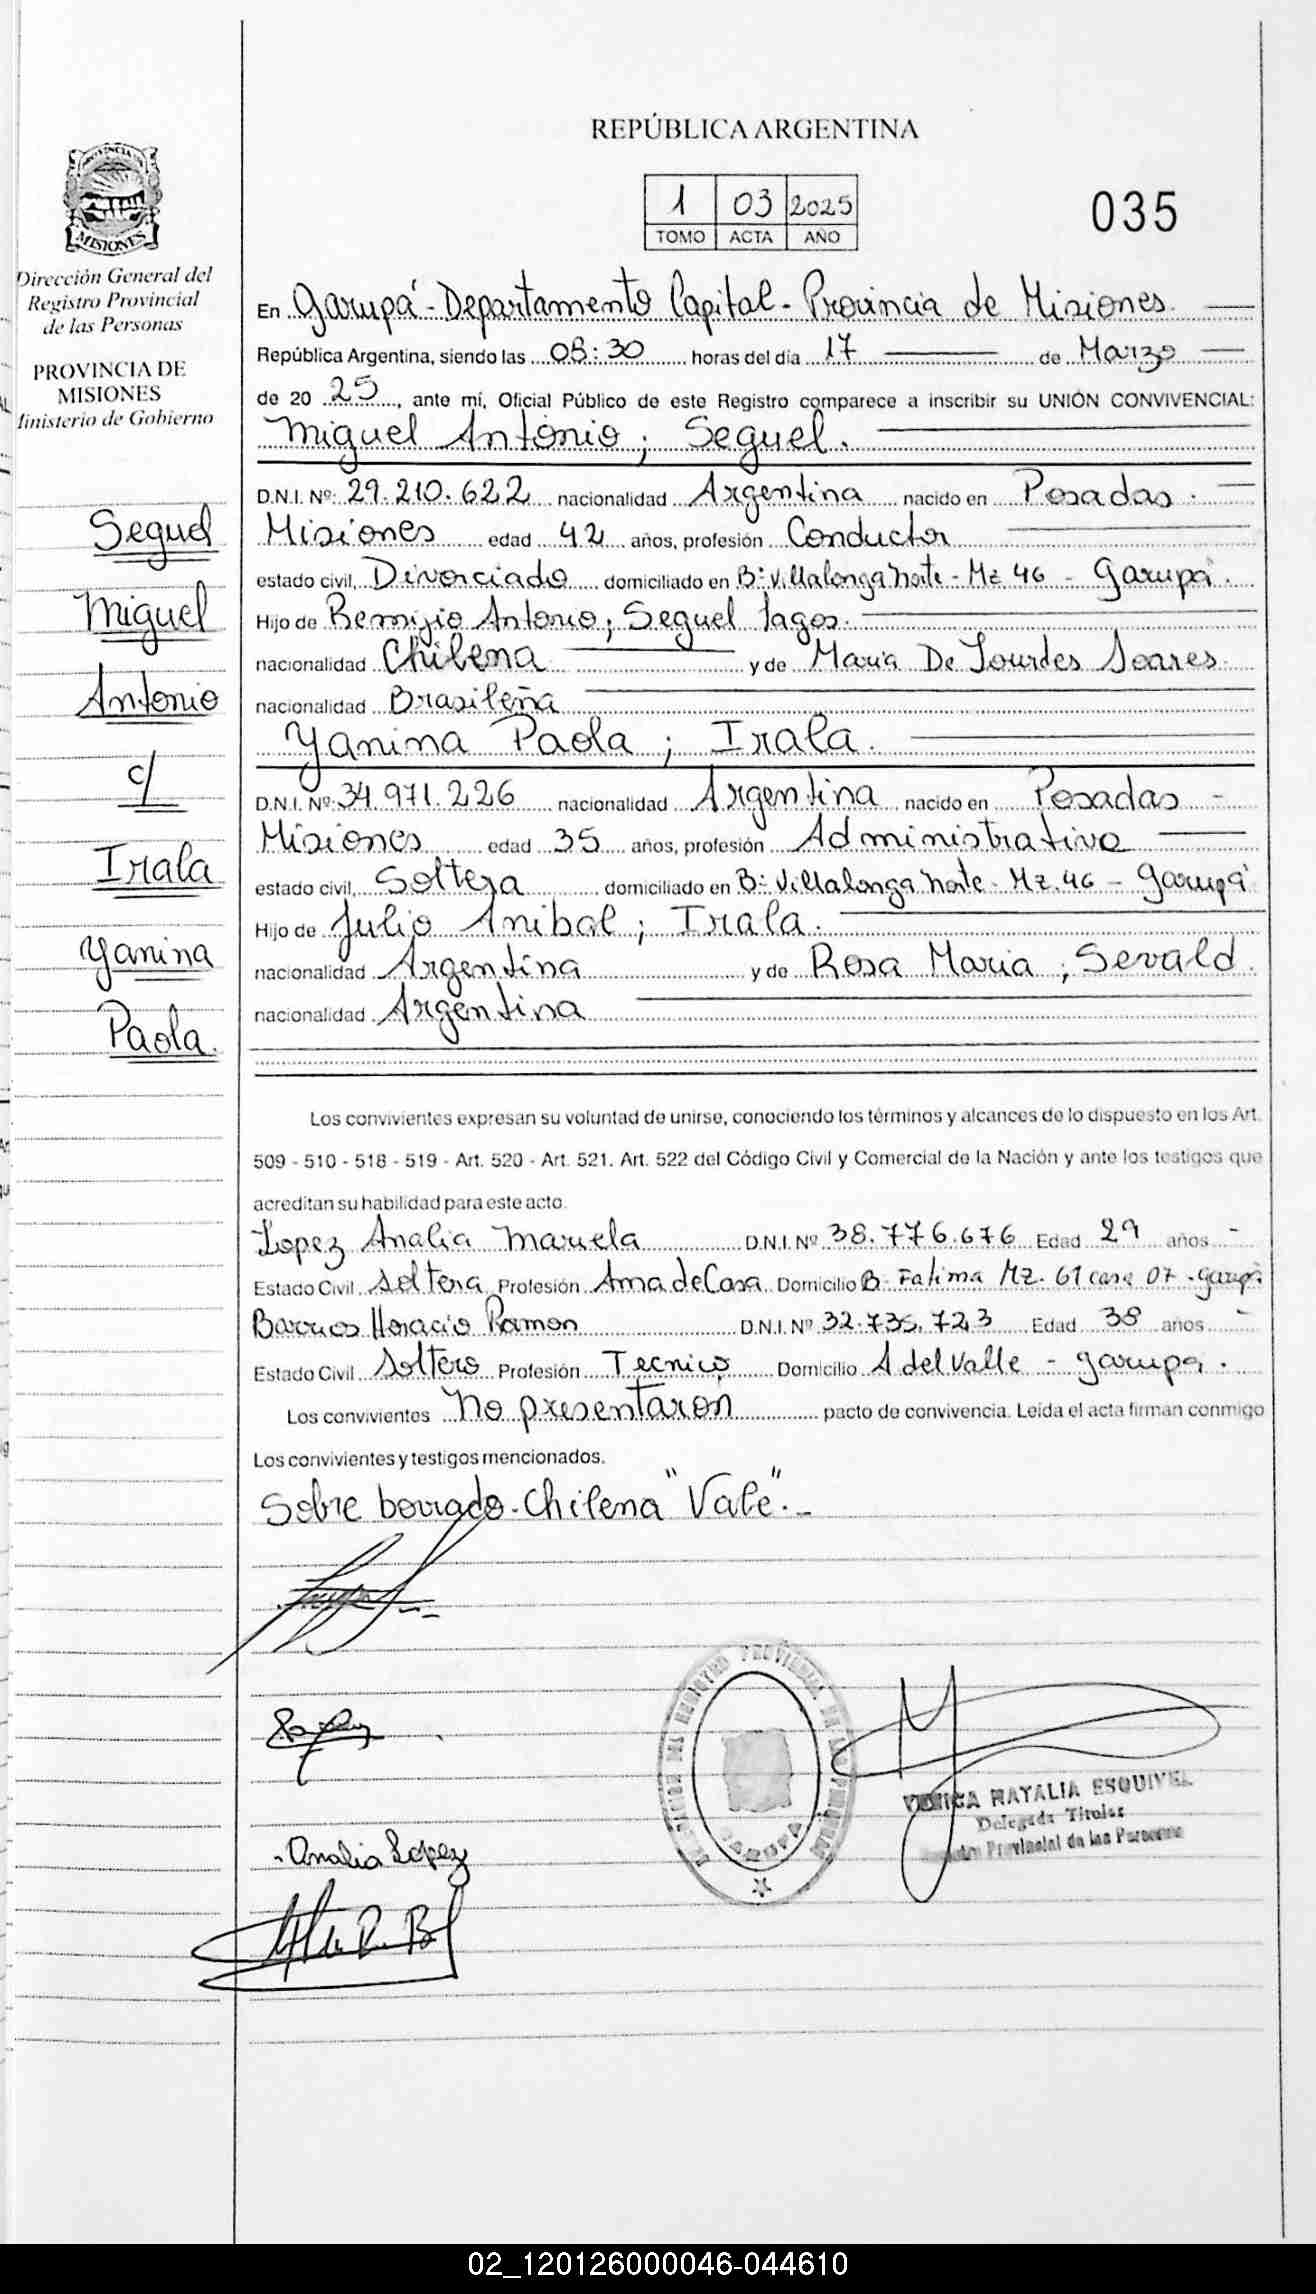 REPÚBLICA ARGENTINA
1 03 2025
TOMO ACTA AÑO
035
PROVINCIA DE
MISIONES
Dirección General del
Registro Provincial
de las Personas
PROVINCIA DE
MISIONES
Ministerio de Gobierno
Seguel
Miguel
Antonio
c/
Irala
Yanina
Paola.
En Garupá - Departamento Capital - Provincia de Misiones.
República Argentina, siendo las 08:30 horas del día 17 de Marzo
de 20 25, ante mí, Oficial Público de este Registro comparece a inscribir su UNIÓN CONVIVENCIAL:
Miguel Antonio; Seguel.
D.N.I. Nº: 29.210.622 nacionalidad Argentina nacido en Posadas -
Misiones edad 42 años, profesión Conductor
estado civil, Divorciado domiciliado en Bº Villalonga Norte - Mz 46 - Garupá.
Hijo de Remijio Antonio; Seguel Lagos.
nacionalidad Chilena y de Maria De Lourdes Soares.
nacionalidad Brasileña
Yanina Paola; Irala.
D.N.I. Nº: 34.971.226 nacionalidad Argentina nacido en Posadas -
Misiones edad 35 años, profesión Administrativa
estado civil, Soltera domiciliado en Bº Villalonga Norte - Mz. 46 - Garupá
Hijo de Julio Anibal; Irala.
nacionalidad Argentina y de Rosa Maria; Sevald.
nacionalidad Argentina
Los convivientes expresan su voluntad de unirse, conociendo los términos y alcances de lo dispuesto en los Art.
509 - 510 - 518 - 519 - Art. 520 - Art. 521. Art. 522 del Código Civil y Comercial de la Nación y ante los testigos que
acreditan su habilidad para este acto.
Lopez Analia Maruela D.N.I. Nº 38.776.676 Edad 29 años -
Estado Civil Soltera Profesión Ama de Casa Domicilio Bº Fatima Mz. 61 casa 07 - Garupá
Barrios Horacio Ramon D.N.I. Nº 32.735.723 Edad 38 años -
Estado Civil Soltero Profesión Tecnico Domicilio A del Valle - Garupá.
Los convivientes No presentaron pacto de convivencia. Leída el acta firman conmigo
Los convivientes y testigos mencionados.
Sobre borrado - Chilena "Vale".-
Analia Lopez
REGISTRO PROVINCIAL DE LAS PERSONAS
GARUPA
NATALIA ESQUIVEL
Delegada Titular
Registro Provincial de las Personas
02_120126000046-044610